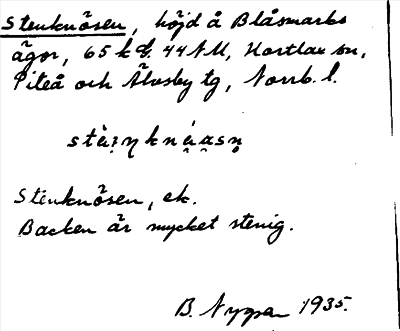 Stenknösen, höjd å Blåsmarks
ägor, 65 k f. 44 NU, Hortlax sn,
Piteå och Älvsby tg, Norrb. l.
Stenknösen, ek.
Backen är mycket stenig.
B. Nygren 1935.